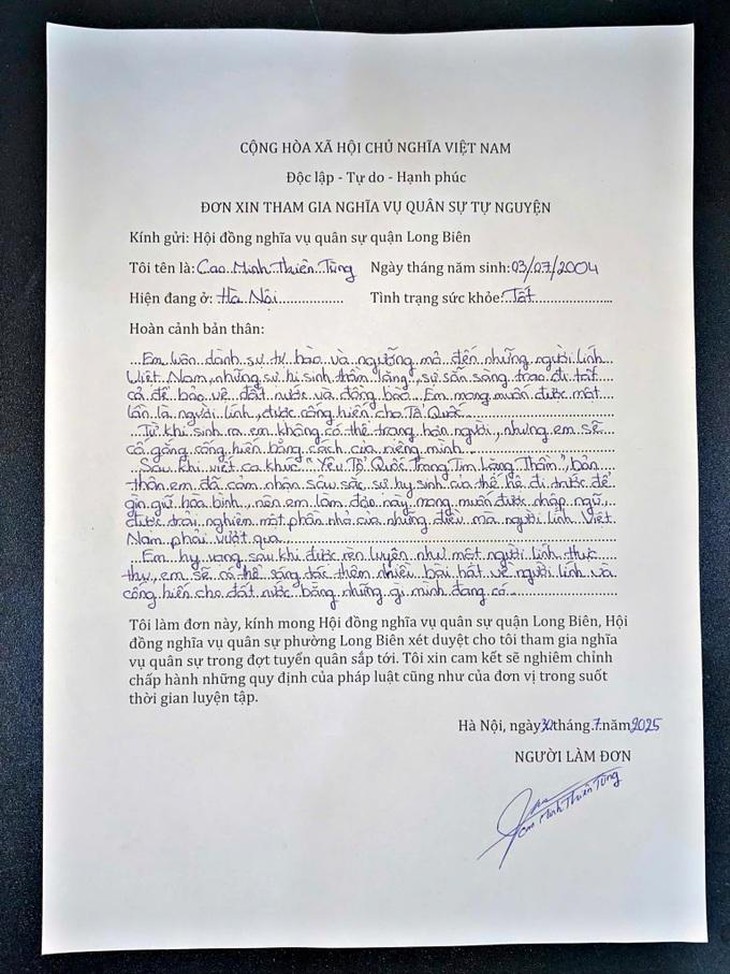 CỘNG HÒA XÃ HỘI CHỦ NGHĨA VIỆT NAM
Độc lập - Tự do - Hạnh phúc
ĐƠN XIN THAM GIA NGHĨA VỤ QUÂN SỰ TỰ NGUYỆN
Kính gửi: Hội đồng nghĩa vụ quân sự quận Long Biên
Tôi tên là: Cao Minh Thiên Tùng Ngày tháng năm sinh: 03/07/2004
Hiện đang ở: Hà Nội Tình trạng sức khỏe: Tốt
Hoàn cảnh bản thân:
Em luôn dành sự tự hào và ngưỡng mộ đến những người lính
Việt Nam, những sự hi sinh thầm lặng, sự sẵn sàng trao đi tất
cả để bảo vệ đất nước và đồng bào. Em mong muốn được một
lần là người lính, được cống hiến cho Tổ Quốc.
Từ khi sinh ra em không có thể trạng hơn người, nhưng em sẽ
cố gắng cống hiến bằng cách của riêng mình.
Sau khi viết ca khúc "Yêu Tổ Quốc Trong Tim Lặng Thầm", bản
thân em đã cảm nhận sâu sắc sự hy sinh của thế hệ đi trước để
gìn giữ hòa bình, nên em làm đơn này mong muốn được nhập ngũ,
được trải nghiệm một phần nhỏ của những điều mà người lính Việt
Nam phải vượt qua.
Em hy vọng sau khi được rèn luyện như một người lính thực
thụ, em sẽ có thể sáng tác thêm nhiều bài hát về người lính và
cống hiến cho đất nước bằng những gì mình đang có.
Tôi làm đơn này, kính mong Hội đồng nghĩa vụ quân sự quận Long Biên, Hội
đồng nghĩa vụ quân sự phường Long Biên xét duyệt cho tôi tham gia nghĩa
vụ quân sự trong đợt tuyển quân sắp tới. Tôi xin cam kết sẽ nghiêm chỉnh
chấp hành những quy định của pháp luật cũng như của đơn vị trong suốt
thời gian luyện tập.
Hà Nội, ngày 30 tháng 7 năm 2025
NGƯỜI LÀM ĐƠN
Cao Minh Thiên Tùng